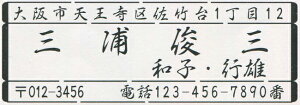 大阪市天王寺区佐竹台1丁目12
三浦俊三
和子・行雄
〒012-3456 電話123-456-7890番